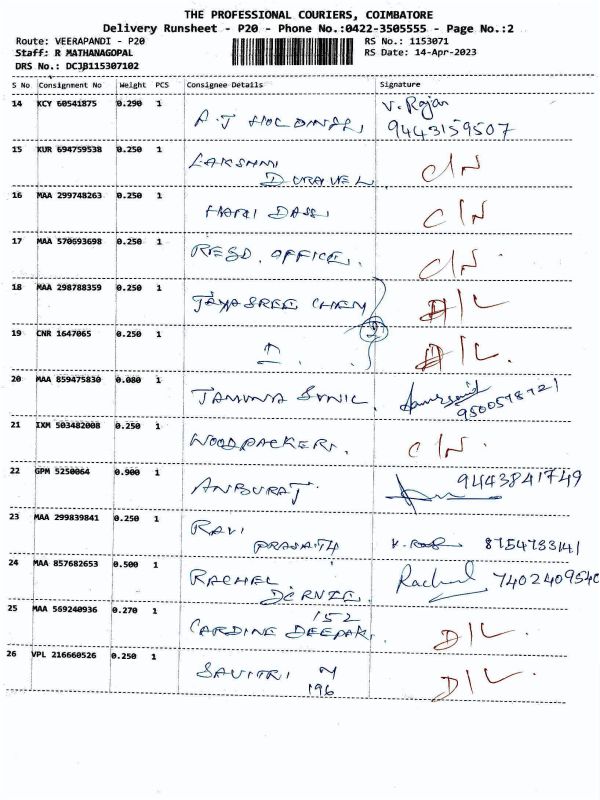 THE PROFESSIONAL COURIERS, COIMBATORE
Delivery Runsheet - P20 - Phone No.:0422-3505555 - Page No.:2
Route: VEERAPANDI - P20 RS No.: 1153071
Staff: R MATHANAGOPAL RS Date: 14-Apr-2023
DRS No.: DCJB115307102
S No Consignment No Weight PCS Consignee Details Signature
14 KCY 60541875 0.290 1 A.J HOLDINGS, V. Rajan
9443159507
15 KUR 694759538 0.250 1 LAKSHMI C/N
16 MAA 299748263 0.250 1 HARI DASS C/N
17 MAA 570693698 0.250 1 REGD. OFFICE. C/N
18 MAA 298788359 0.250 1 JAYASREE CHEM D/L
19 CNR 1647065 0.250 1 2 D/L.
20 MAA 859475830 0.080 1 JAMUNA SUNIL.
21 IXM 503482008 0.250 1 WOODPACKERS. C/N.
22 GPM 5250064 0.900 1 ANBURAJ. 9443841749
23 MAA 299839841 0.250 1 RAVI
PRASATH 8754733141
24 MAA 857682653 0.500 1 RACHEL Rachel 7402409540
25 MAA 569240936 0.270 1 152
DEEPAK. D/L.
26 VPL 216660526 0.250 1 SAVITRI M D/L
196